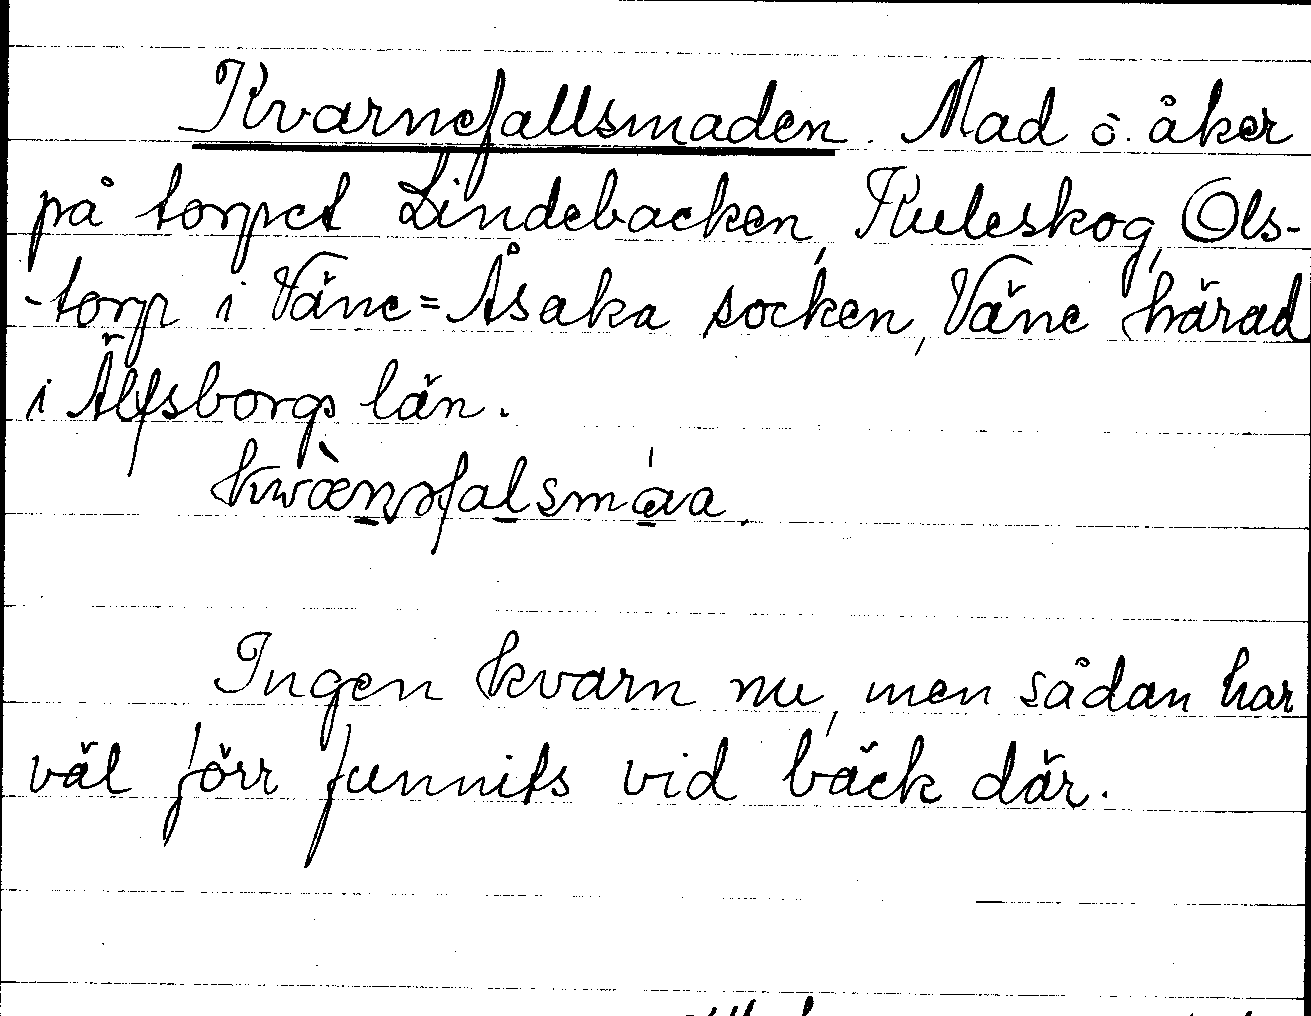 Kvarnefallsmaden. Mad o. åker
på torpet Lindebacken, Kuleskog, Ols-
-torp i Väne=Åsaka socken, Väne härad
i Älfsborgs län.
kwæ̀nəfalsmáa.
Ingen kvarn nu, men sådan har
väl förr funnits vid bäck där.